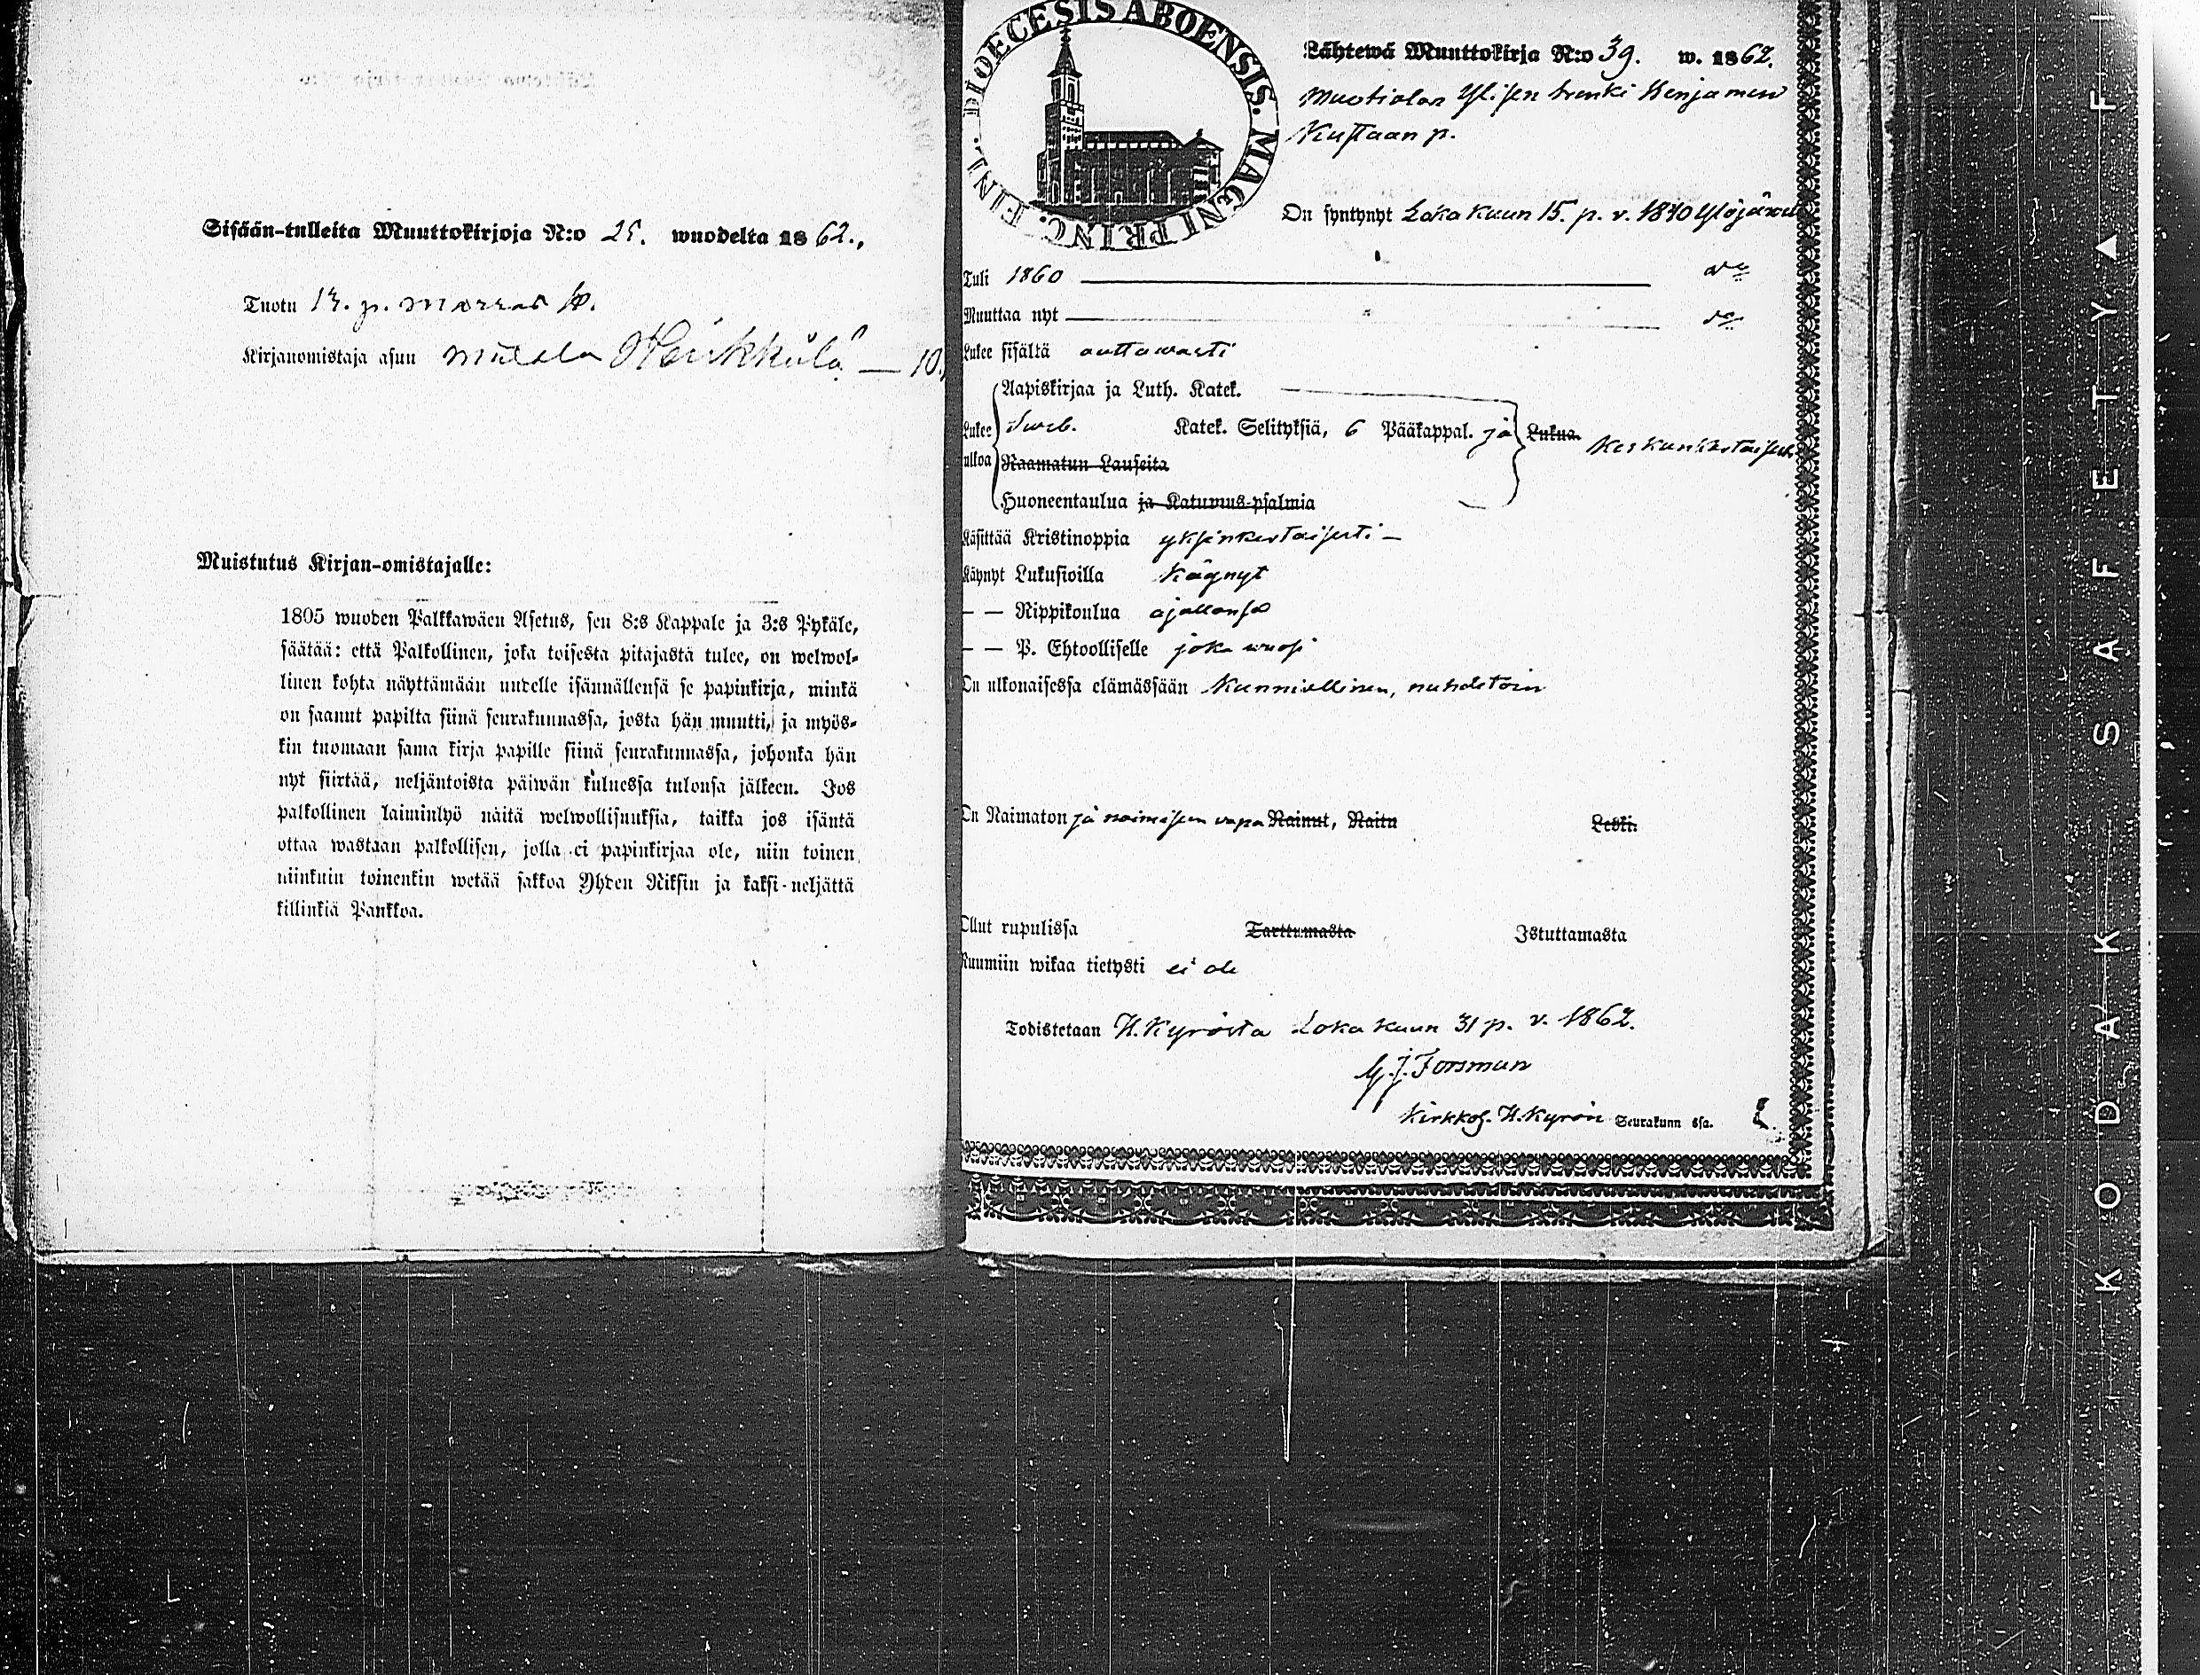 Sisään-tulleita Muuttokirjoja N:o 25. wuodelta 1862.,
Tuotu 13. p. marras k.
Kirjanomistaja asuu Heikkilä — 10.
Muistutus Kirjan-omistajalle:
1805 wuoden Palkkawäen Asetus, sen 8:s Kappale ja 3:s Pykäle,
säätää: että Palkollinen, joka toisesta pitäjästä tulee, on welwol-
linen kohta näyttämään uudelle isännällensä se papinkirja, minkä
on saanut papilta siinä seurakunnassa, josta hän muutti, ja myös-
kin tuomaan sama kirja papille siinä seurakunnassa, johonka hän
nyt siirtää, neljäntoista päiwän kuluessa tulonsa jälkeen. Jos
palkollinen laiminlyö näitä welwollisuuksia, taikka jos isäntä
ottaa wastaan palkollisen, jolla ei papinkirjaa ole, niin toinen
niinkuin toinenkin wetää sakkoa Yhden Riksin ja kaksi-neljättä
killinkiä Pankkoa.
DIOECESIS ABOENSIS. MAGNI PRINC. FINL.
Lähtewä Muuttokirja N:o 39. w. 1862.
Muotialan Ylisen trenki Benjamin
Kustaan p.
On syntynyt Loka kuun 15. p. v. 1840 Ylöjärvell
Tuli 1860
Muuttaa nyt "
Lukee sisältä auttawasti
Aapiskirjaa ja Luth. Katek.
Lukee Sweb. Katek. Selityksiä, 6 Pääkappal. ja Lukua.
ulkoa Raamatun Lauseita
Huoneentaulua ja Katumus-psalmia
Käsittää Kristinoppia yksinkertaisesti –
Käynyt Lukusioilla Käynyt
— — Rippikoulua ajallansa
— — P. Ehtoolliselle joka wuosi
On ulkonaisessa elämässään Kunniallinen, nuhdetoin
On Naimaton ja naimiseen vapa Nainut, Naitu Leski.
Ollut rupulissa Tarttumasta Istuttamasta
Ruumiin wikaa tietysti ei ole
Todistetaan H. Kyröstä Loka kuun 31 p. v. 1862.
G. J. Forsman
Kirkkoh. H. Kyrön Seurakunn ssa.
KODAK SAFETY ▲ F I